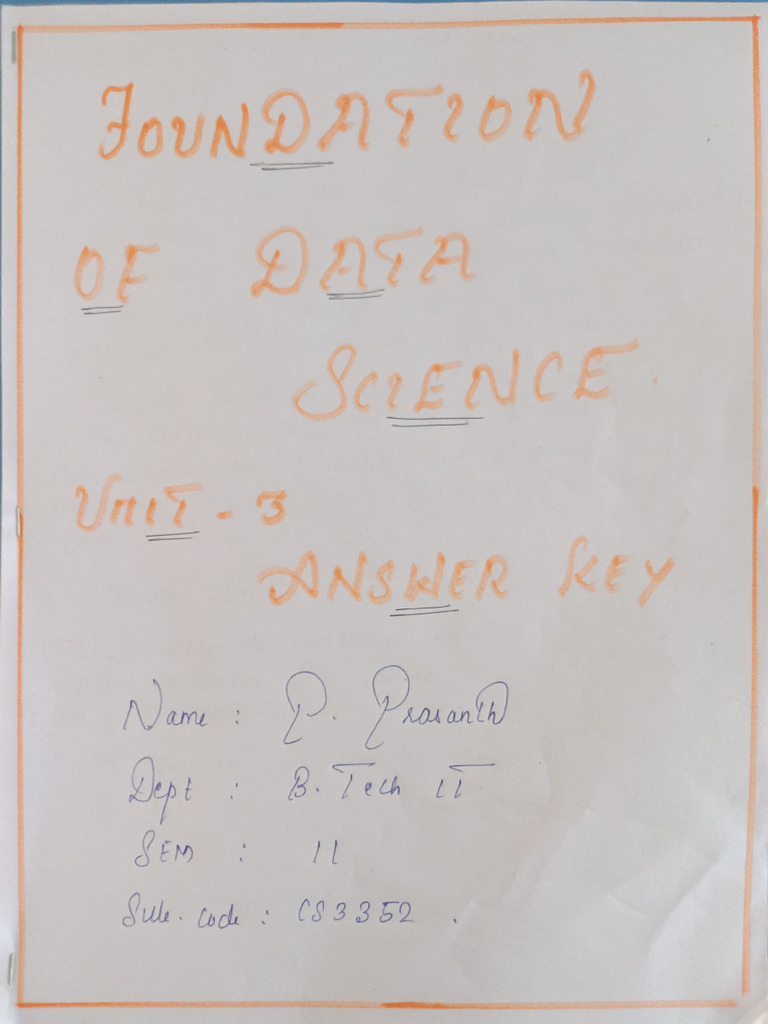 FOUNDATION
OF DATA
SCIENCE
UNIT - 3
ANSWER KEY
Name : P. Prasanth
Dept : B. Tech IT
SEM : II
Sub. code : CS3352.